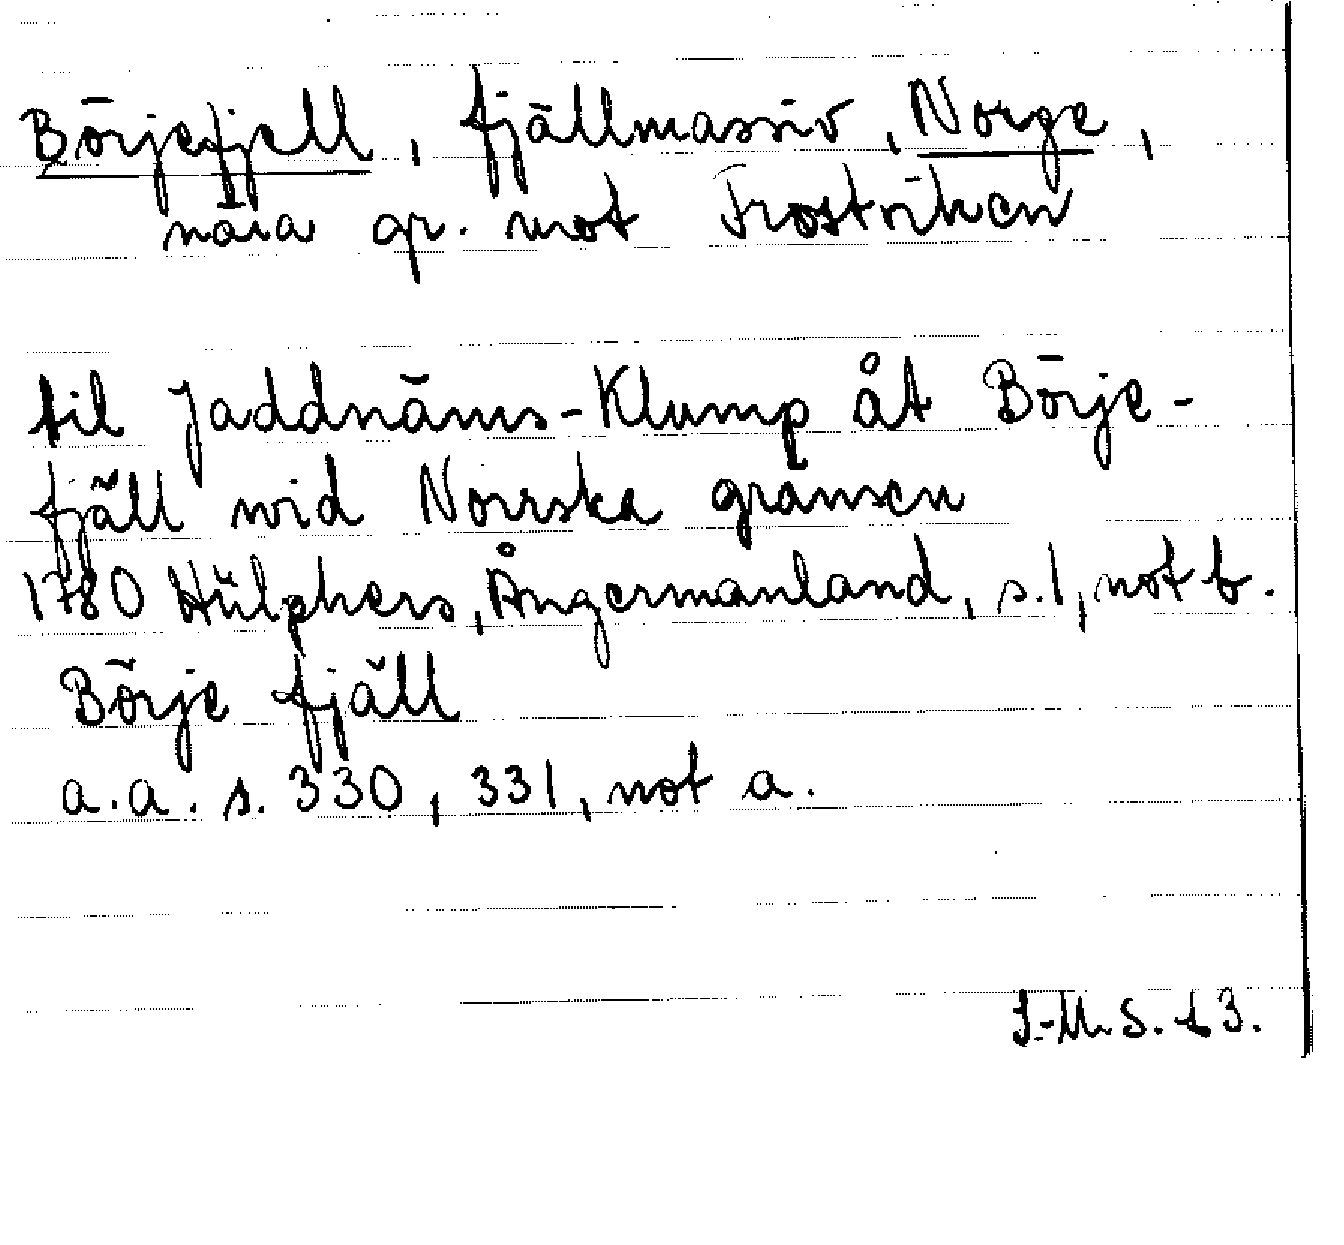 Börjefjell, fjällmassiv, Norge,
nära gr. mot Frostviken
til Jaddnäms-Klump åt Börje-
fjäll wid Norrska gränsen
1780 Hülphers, Ångermanland, s. 1, not b.
Börje fjäll
a.a. s. 330, 331, not a.